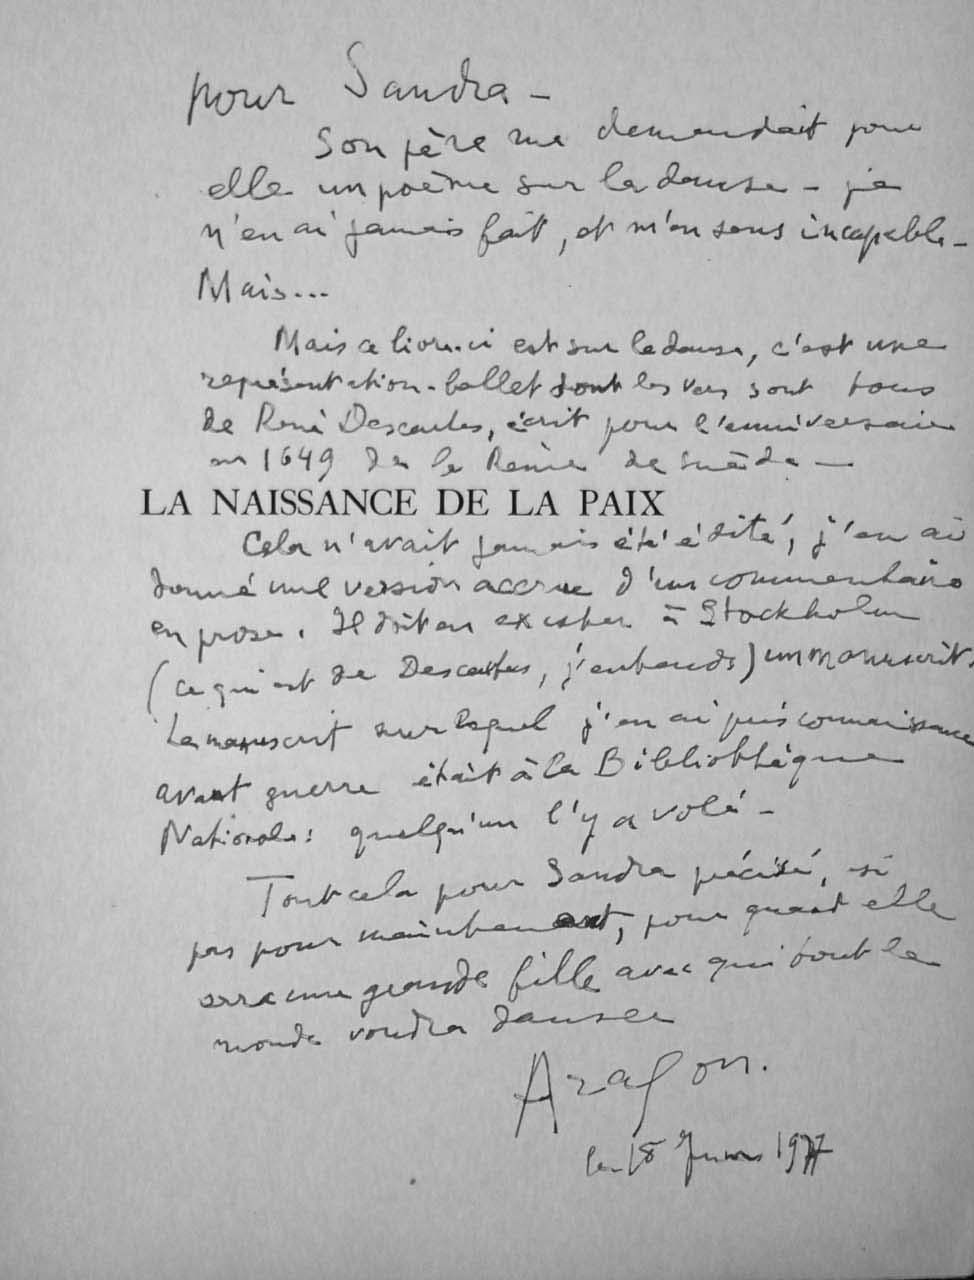 pour Sandra -
Son père me demandait pour
elle un poème sur la danse - je
n'en ai jamais fait, et m'en sens incapable -
Mais...
Mais ce livre-ci est sur la danse, c'est une
représentation-ballet dont les vers sont tous
de René Descartes, écrit pour l'anniversaire
en 1649 de la Reine de Suède -
LA NAISSANCE DE LA PAIX
Cela n'avait jamais été édité, j'en ai
donné une version accrue d'un commentaire
en prose. Il doit en exister à Stockholm
(ce qui est de Descartes, j'entends) un manuscrit.
Le manuscrit sur lequel j'en ai pris connaissance
avant guerre était à la Bibliothèque
Nationale: quelqu'un l'y a volé -
Tout cela pour Sandra précisé, si
pas pour maintenant, pour quand elle
sera une grande fille avec qui tout le
monde voudra danser
Aragon.
le 18 1977